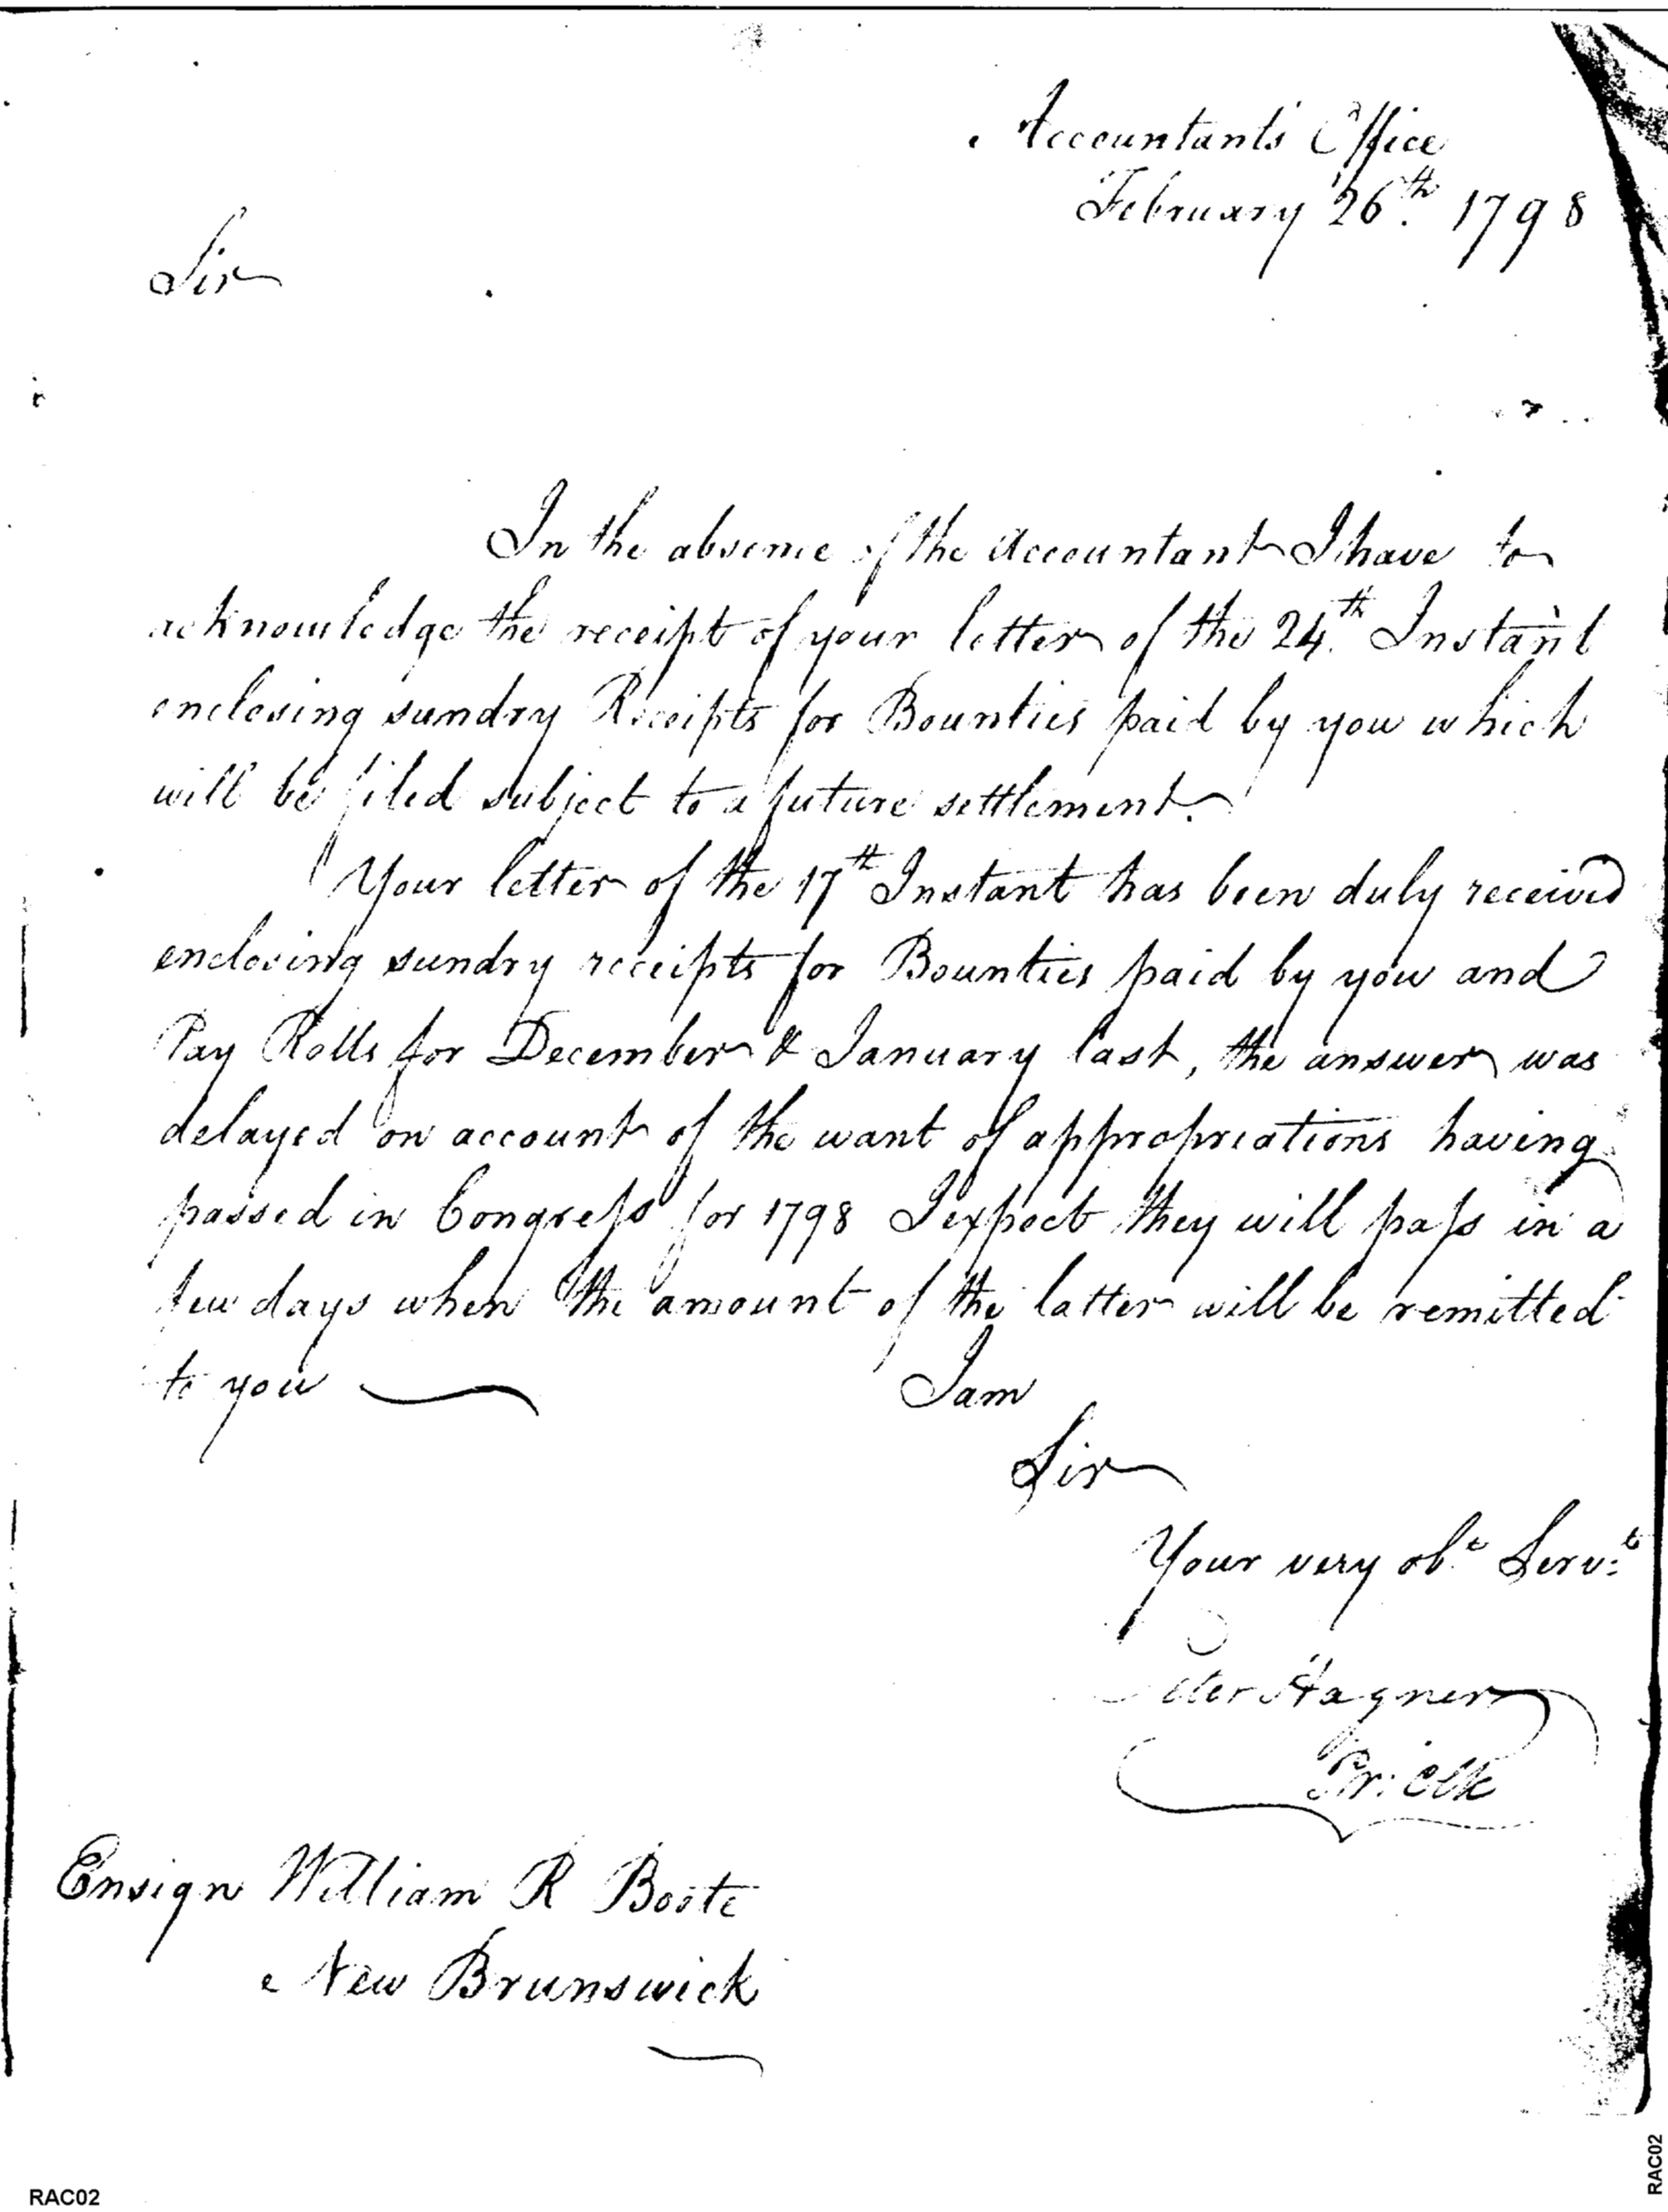 Accountants Office
February 26th. 1798
Sir
In the absence of the Accountant I have to
acknowledge the receipt of your letter of the 24th. Instant
enclosing sundry Receipts for Bounties paid by you which
will be filed subject to a future settlement.
Your letter of the 17th Instant has been duly received
enclosing sundry receipts for Bounties paid by you and
Pay Rolls for December & January last, the answer was
delayed on account of the want of appropriations having
passed in Congress for 1798 I expect they will pass in a
few days when the amount of the latter will be remitted
to you
I am
Sir
Your very obt. Servt.
Peter Hagner
Pr: Clk
Ensign William R Boote
New Brunswick
RAC02
RAC02